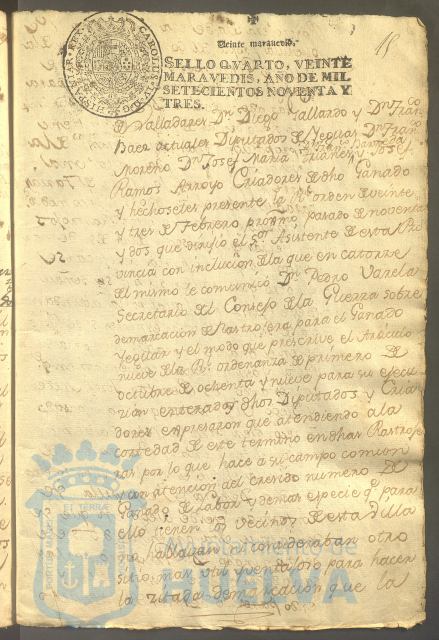 15
Veinte maravedis.
SELLO QVARTO, VEINTE
MARAVEDIS, AÑO DE MIL
SETECIENTOS NOVENTA Y
TRES.
CAROLUS IV D G HISPANIAR REX
Valladares Dn Diego Gallardo y Dn Franco
Baez actuales Diputados de Yeguas Dn Fran
Moreno Dn Josef Maria y Josef
Ramos Arroyo Criadores de dho Ganado
y hechoseles presente la Rl orden de veinte
y tres de Febrero proximo pasado de noventa
y dos que dirijio el Sor Asistente de esta Pro
vincia con inclucion de la que en catorce
del mismo le comunicó Dn Pedro Varela
Secretario del Consejo de la Guerra sobre
demarcacion de Rastrogeras para el Ganado
Yeguar y el modo que prescrive el Articulo
nueve de la Rl ordenanza de primero de
octubre de ochenta y nueve para su ejecu
enterados dhos Diputados y Cria
dores expresaron que atendiendo a la
cortedad de este termino en dhas Rastroje
ras por lo que hace a su campo comun
y con atencion al crecido numero de
Ganado de Labor y demas especie qe para
ello tienen los vecinos de esta Villa
no hallavan ni consideraban otro
sitio mas util y para hacer
la citada demarcacion que la
Ayuntamiento de
HUELVA